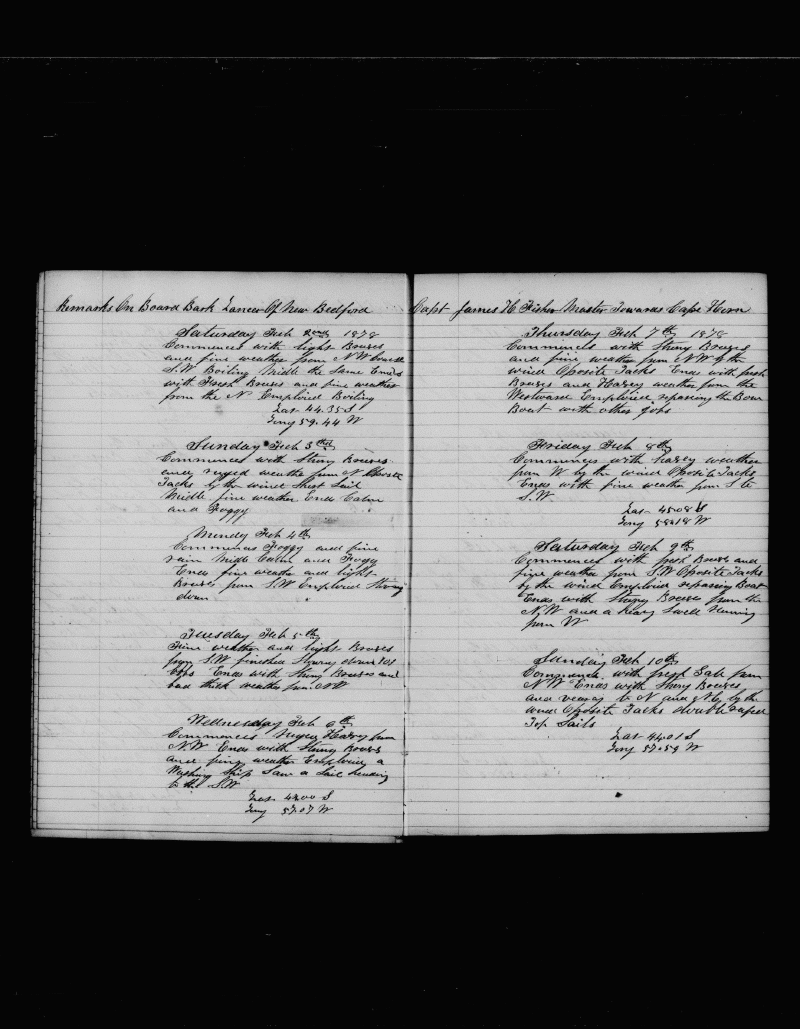 Remarks On Board Bark Lancer Of New Bedford
Saturday Feb 2nd 1878
Commences with light Breuses
and fine weather from NW
S.W Boiling Midle the Same Ends
with Fresh Breuses and fine weather
from the N Employed Boiling
Lat 44.35 S
Long 59.44 W
Sunday Feb 3rd
Commences with Strong Breuses
and ruged weather from N Oposite
Tacks by the wind Short Sail
Midle fine weather Ends Calm
and Foggy
Monday Feb 4th
Commences Foggy and fine
rain Midle Calm and Foggy
Ends fine weather and light
Breuses from S.W Employed Stowing
down
Tuesday Feb 5th
Fine weather and light Breuses
from S.W finished Stowing down 101
bbls Ends with Strong Breuses and
bad thick weather from NW
Wednesday Feb 6th
Commences Ruged Hazey from
N.W Ends with Strong Breuses
and fine weather Employed
Washing Ship Saw a Sail heading
to the S.W
Lat
Long 57.07 W
Capt James H Fisher Master Towards Cape Horn
Thursday Feb 7th 1878
Commences with Strong Breuses
and fine weather from NW by the
wind Oposite Tacks Ends with fresh
Breuses and Hazey weather from the
Westward Employed repairing the Bow
Boat with other jobs
Friday Feb 8th
Commences with hazey weather
from W by the wind Oposite Tacks
Ends with fine weather from S to
S.W
Lat 45.08 S
Long 58.18 W
Saturday Feb 9th
Commences with fresh Breuses and
fine weather from S.W Oposite Tacks
by the wind Employed repairing Boat
Ends with Strong Breuses from the
N.W and a heavy Swell Running
from W
Sunday Feb 10th
Commences with fresh Gale from
N.W Ends with Strong Breuses
and vearing to N and by the
wind Oposite Tacks double reefed
Top Sails
Lat 44.01 S
Long 57.59 W